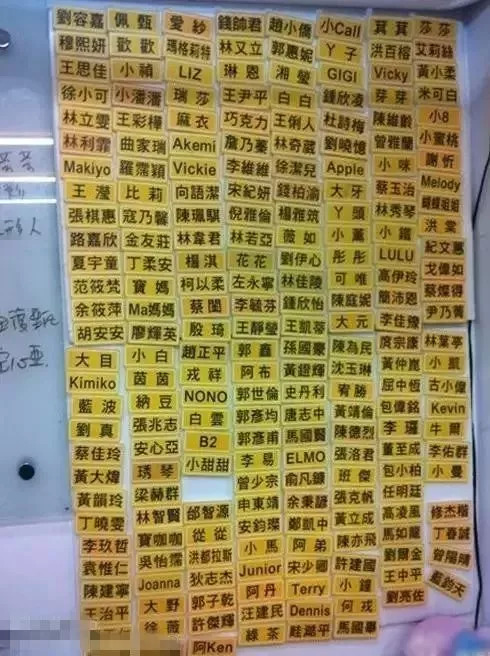 劉容嘉 佩甄 愛紗 錢帥君 趙小僑 小Call 萁萁 莎莎
穆熙妍 歡歡 瑪格莉特 林又立 郭惠妮 丫子 洪百榕 艾莉絲
王思佳 小禎 LIZ 琳恩 湘瑩 GIGI Vicky 黃小柔
徐小可 小潘潘 瑞莎 王尹平 白白 鍾欣凌 芽芽 米可白
林立雯 王彩樺 麻衣 巧克力 王俐人 杜詩梅 陳維齡 小8
林利霏 曲家瑞 Akemi 詹乃蓁 林奇葳 劉曉憶 曾雅蘭 小蜜桃
Makiyo 羅霈穎 Vickie 李維維 徐潔兒 Apple 小咪 謝忻
王瀅 比莉 向語潔 宋紀妍 錢柏渝 大牙 蔡玉治 Melody
張棋惠 寇乃馨 陳珮騏 倪雅倫 楊雅筑 丫頭 林秀琴 蝴蝶姐姐
路嘉欣 金友莊 林韋君 林若亞 薇如 小薰 小鐵 洪棠
夏宇童 丁柔安 楊淇 花花 劉伊心 彤彤 LULU 紀文惠
范筱梵 寶媽 柯以柔 左永寧 林佳陵 可唯 高伊玲 戈偉如
余筱萍 Ma媽媽 蔡閨 李毓芬 鍾欣怡 陳庭妮 簡沛恩 蔡燦得
胡安安 廖輝英 殷琦 王靜瑩 王凱蒂 大元 李佳豫 尹乃菁
大目 小白 趙正平 郭鑫 孫國豪 陳為民 庹宗康 林葉亭
Kimiko 茵茵 戎祥 阿布 黃鐙輝 沈玉琳 黃仲崑 小凱
藍波 納豆 NONO 郭世倫 史丹利 宥勝 屈中恆 古小偉
劉真 張兆志 白雲 郭彥均 唐志中 黃靖倫 包偉銘 Kevin
蔡佳玲 安心亞 B2 郭彥甫 馬國賢 陳德烈 李㼈 牛爾
黃大煒 琇琴 小甜甜 李易 ELMO 張洛君 董至成 李佑群
黃韻玲 梁赫群 曾少宗 俞凡鏞 班傑 包小柏 小曼
丁曉雯 林智賢 邰智源 申東靖 余秉諺 張克帆 任明廷
李玖哲 寶咖咖 從從 安鈞璨 鄭凱中 黃立成 高凌風 修杰楷
袁惟仁 吳怡霈 洪都拉斯 小馬 阿弟 陳亦飛 馬如龍 丁春誠
陳建寧 Joanna 狄志杰 Junior 宋少卿 許建國 劉爾金 曾陽晴
王治平 大野 郭子乾 阿丹 Terry 小鐘 王中平 藍鈞天
徐薇 許傑輝 汪建民 Dennis 何戎 劉亮佐
阿Ken 綠茶 馬國畢